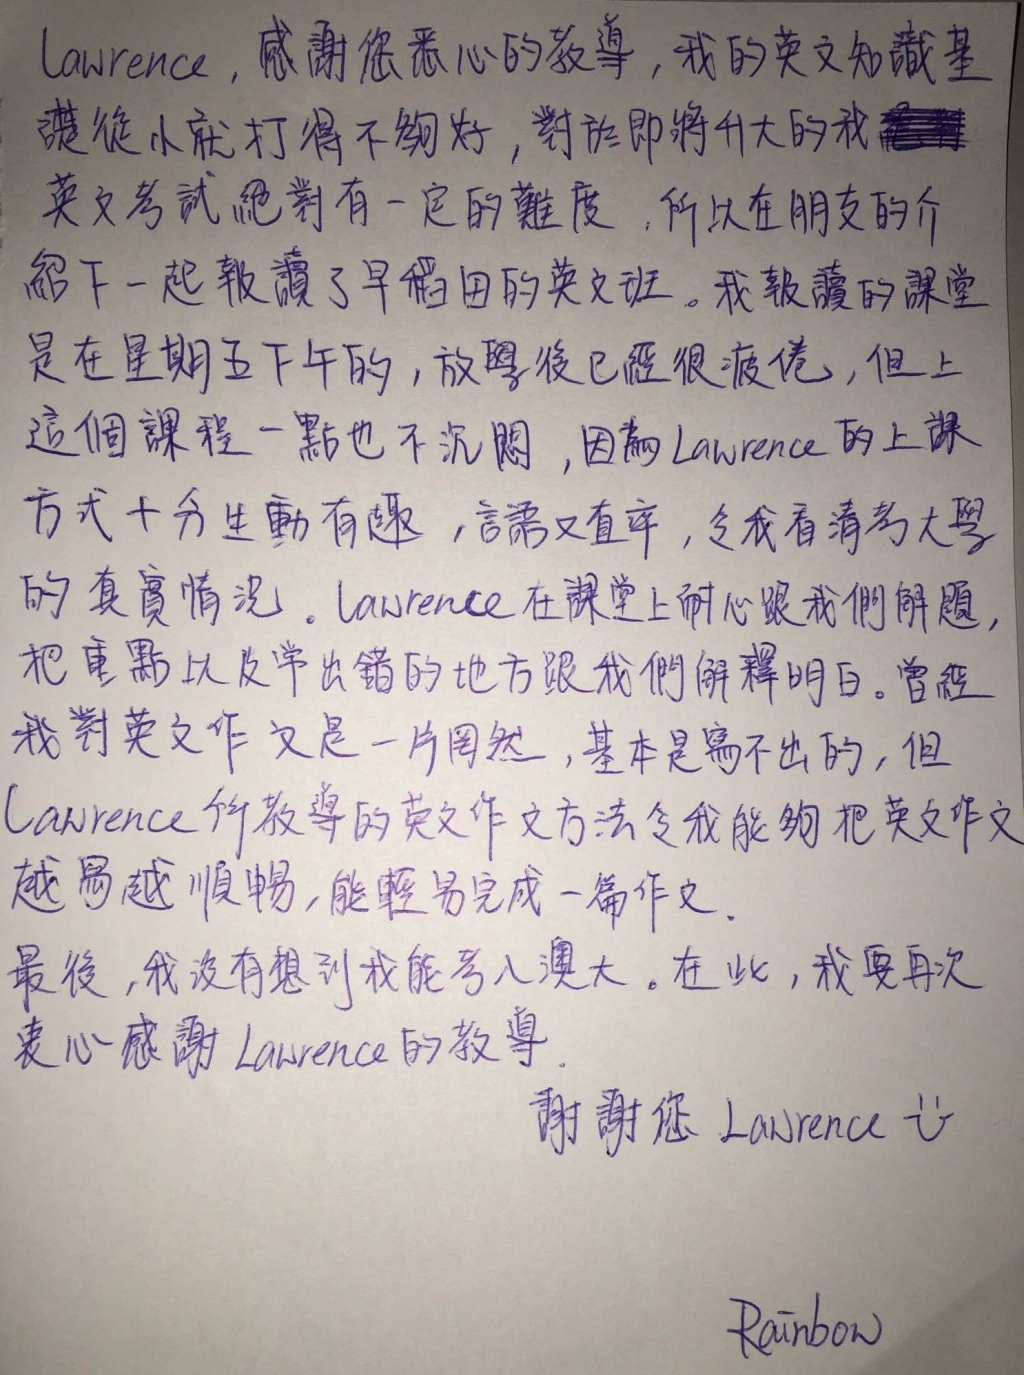 Lawrence，感謝您悉心的教導，我的英文知識基
礎從小就打得不夠好，對於即將升大的我
英文考試絕對有一定的難度，所以在朋友的介
紹下一起報讀了早稻田的英文班。我報讀的課堂
是在星期五下午的，放學後已經很疲倦，但上
這個課程一點也不沉悶，因為Lawrence的上課
方式十分生動有趣，言語又直率，令我看清考大學
的真實情況。Lawrence在課堂上耐心跟我們解題，
把重點以及常出錯的地方跟我們解釋明白。曾經
我對英文作文是一片罔然，基本是寫不出的，但
Lawrence所教導的英文作文方法令我能夠把英文作文
越寫越順暢，能輕易完成一篇作文。
最後，我沒有想到我能考入澳大。在此，我要再次
衷心感謝Lawrence的教導。
謝謝您 Lawrence
Rainbow